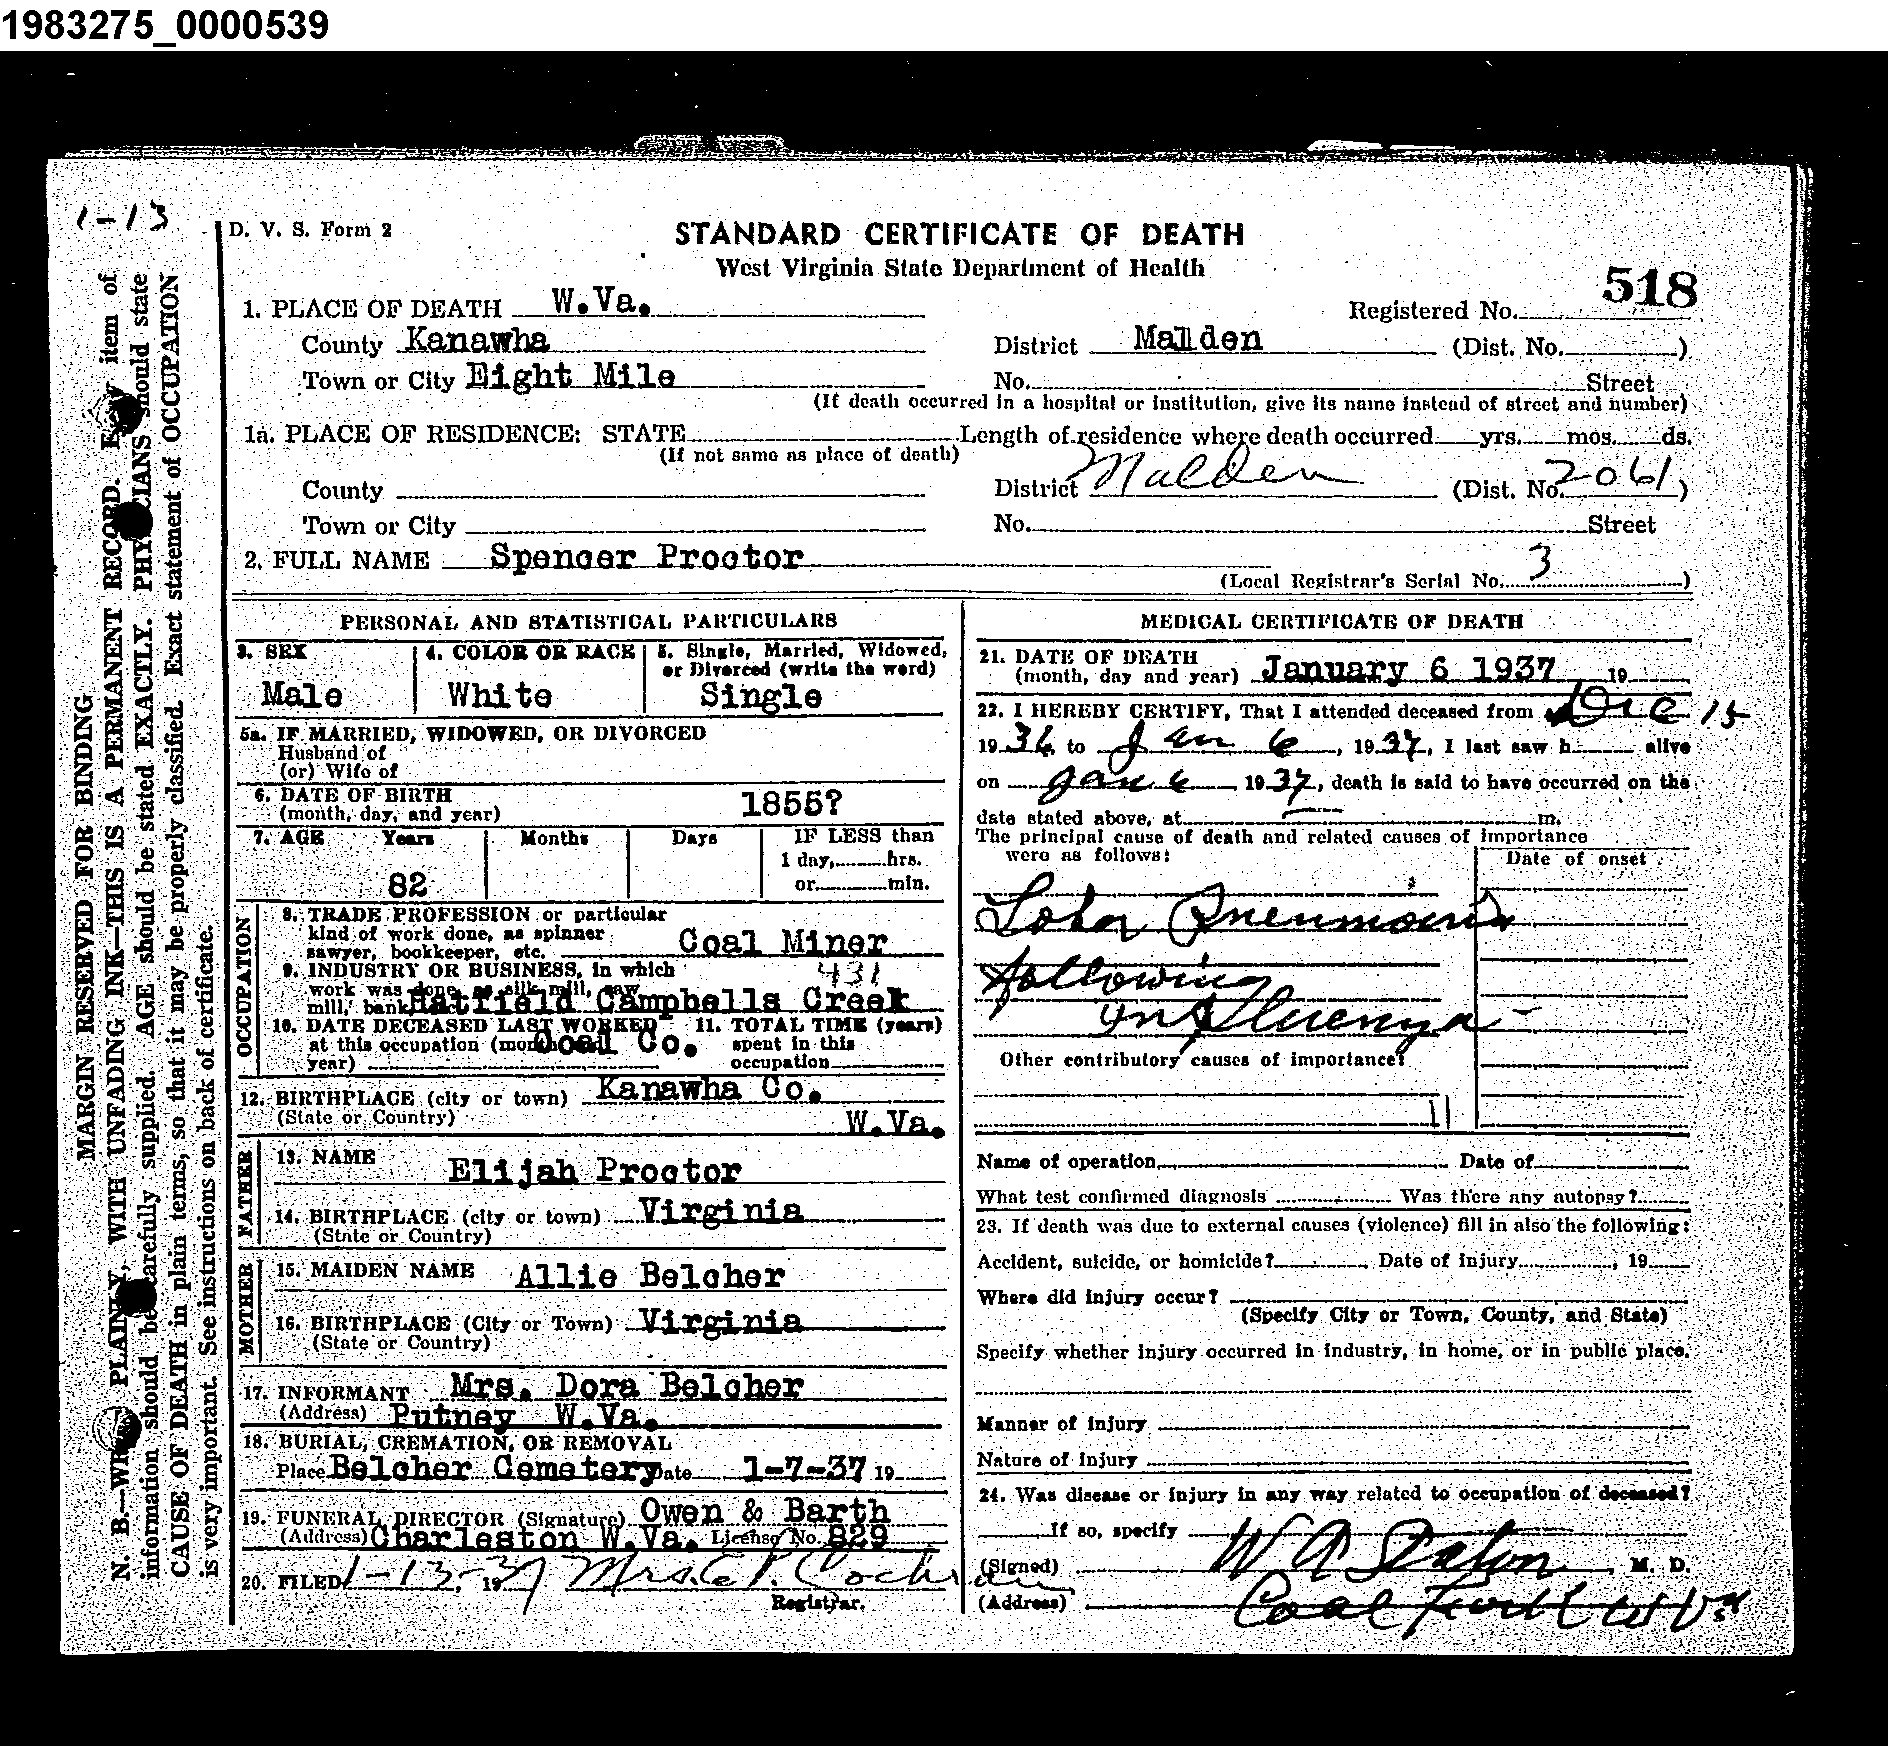 1983275_0000539
1-13
D. V. S. Form 2
STANDARD CERTIFICATE OF DEATH
West Virginia State Department of Health
518
1. PLACE OF DEATH W.Va. Registered No.
County Kanawha District Malden (Dist. No. )
Town or City Eight Mile No. Street
(If death occurred in a hospital or institution, give its name instead of street and number)
1a. PLACE OF RESIDENCE: STATE Length of residence where death occurred yrs. mos. ds.
(If not same as place of death)
County District Malden (Dist. No. 2061)
Town or City No. Street
2. FULL NAME Spencer Proctor
(Local Registrar's Serial No. 3 )
MARGIN RESERVED FOR BINDING
N. B.—WRITE PLAINLY, WITH UNFADING INK—THIS IS A PERMANENT RECORD. Every item of
information should be carefully supplied. AGE should be stated EXACTLY. PHYSICIANS should state
CAUSE OF DEATH in plain terms, so that it may be properly classified. Exact statement of OCCUPATION
is very important. See instructions on back of certificate.
PERSONAL AND STATISTICAL PARTICULARS
3. SEX
Male
4. COLOR OR RACE
White
5. Single, Married, Widowed,
or Divorced (write the word)
Single
5a. IF MARRIED, WIDOWED, OR DIVORCED
Husband of
(or) Wife of
6. DATE OF BIRTH
(month, day, and year) 1855?
7. AGE Years Months Days IF LESS than
1 day, hrs.
82 or min.
OCCUPATION
8. TRADE PROFESSION or particular
kind of work done, as spinner
sawyer, bookkeeper, etc. Coal Miner
9. INDUSTRY OR BUSINESS, in which 431
work was done, as silk mill, saw
mill, bank, Hatfield Campbells Creek
10. DATE DECEASED LAST WORKED 11. TOTAL TIME (years)
at this occupation (month Coal Co. spent in this
year) occupation
12. BIRTHPLACE (city or town) Kanawha Co.
(State or Country) W.Va.
FATHER
13. NAME Elijah Proctor
14. BIRTHPLACE (city or town) Virginia
(State or Country)
MOTHER
15. MAIDEN NAME Allie Belcher
16. BIRTHPLACE (City or Town) Virginia
(State or Country)
17. INFORMANT Mrs. Dora Belcher
(Address) Putney W.Va.
18. BURIAL, CREMATION, OR REMOVAL
Place Belcher Cemetery Date 1-7-37 19
19. FUNERAL DIRECTOR (Signature) Owen & Barth
(Address) Charleston W.Va. License No. 829
20. FILED 1-13-, 1937 Mrs. C. P. Cochran
Registrar.
MEDICAL CERTIFICATE OF DEATH
21. DATE OF DEATH
(month, day and year) January 6 1937 19
22. I HEREBY CERTIFY, That I attended deceased from Dec 15
1936 to Jan 6, 1937, I last saw h alive
on Jan 6 1937, death is said to have occurred on the
date stated above, at — m.
The principal cause of death and related causes of importance
were as follows:
Date of onset
Lobar Pneumonia
following
Influenza -
Other contributory causes of importance:
11
Name of operation Date of
What test confirmed diagnosis Was there any autopsy?
23. If death was due to external causes (violence) fill in also the following:
Accident, suicide, or homicide? Date of injury , 19
Where did injury occur?
(Specify City or Town, County, and State)
Specify whether injury occurred in industry, in home, or in public place.
Manner of injury
Nature of injury
24. Was disease or injury in any way related to occupation of deceased?
If so, specify
(Signed) W A , M. D.
(Address) Coal Fork W Va